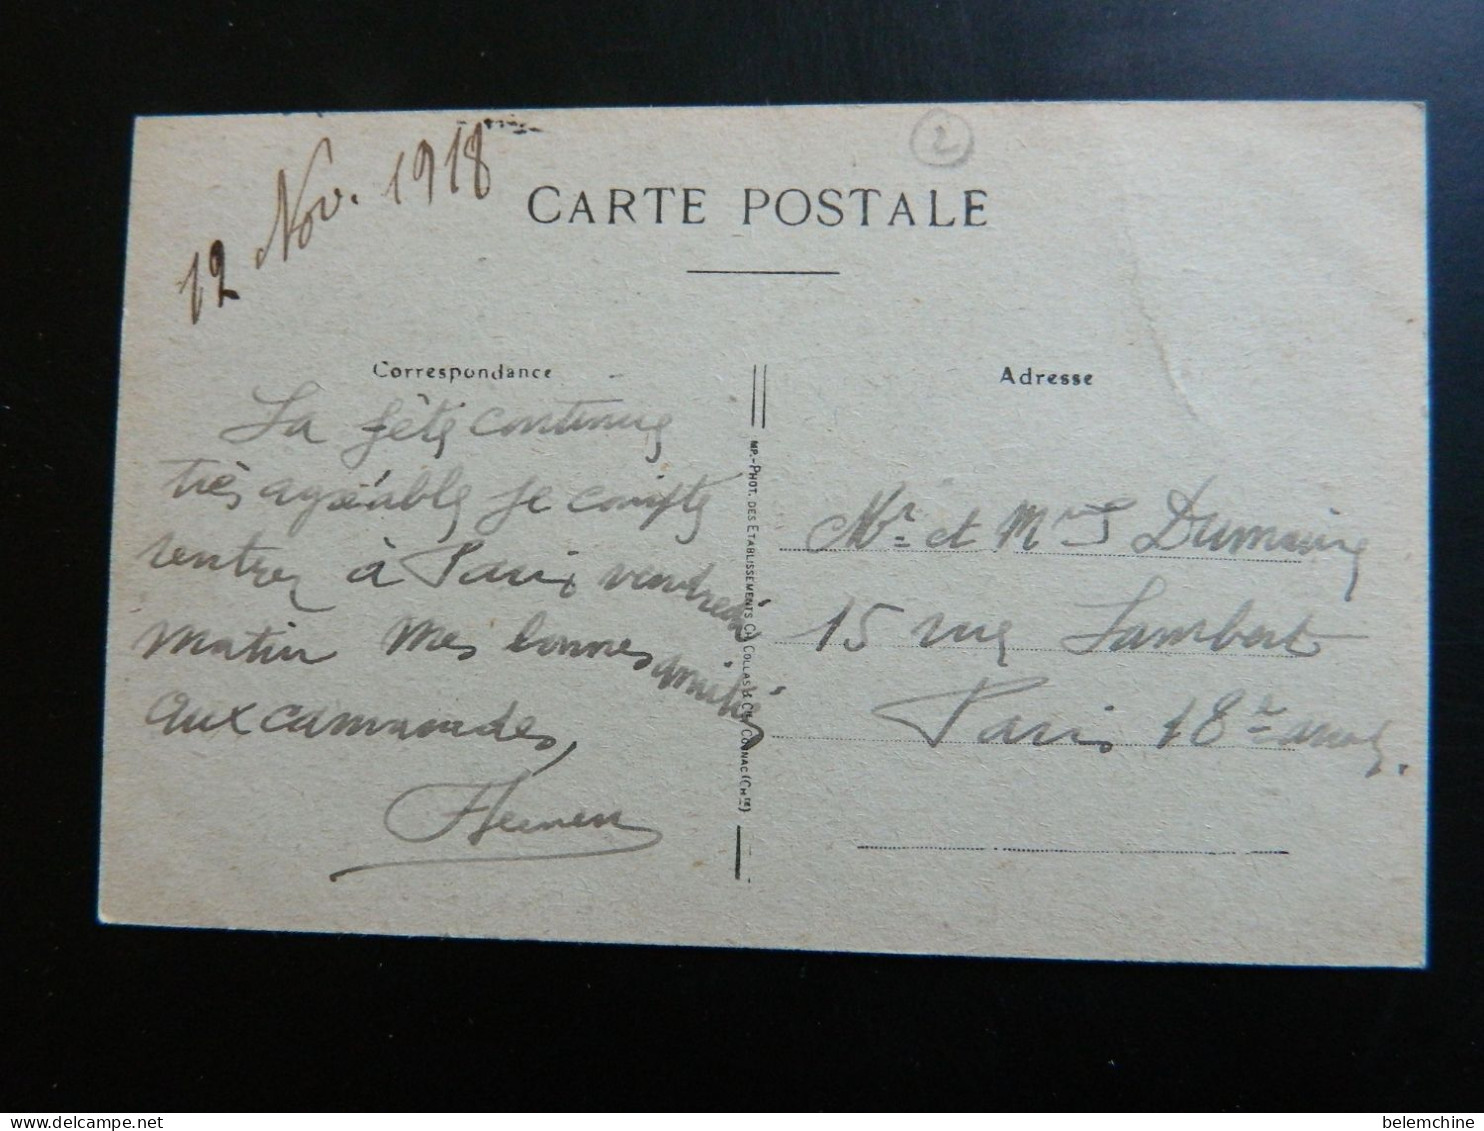 12 Nov. 1918
2
CARTE POSTALE
Correspondance
Adresse
La fête continue
très agréable je compte
rentrer à Paris vendredi
matin Mes bonnes amitiés
aux camarades,
MP.-PHOT. DES ETABLISSEMENTS CH. COLLAS & Cie COGNAC (Chte)
Mr et Mme Dumaine
15 rue Lambert
Paris 18e
belemchine